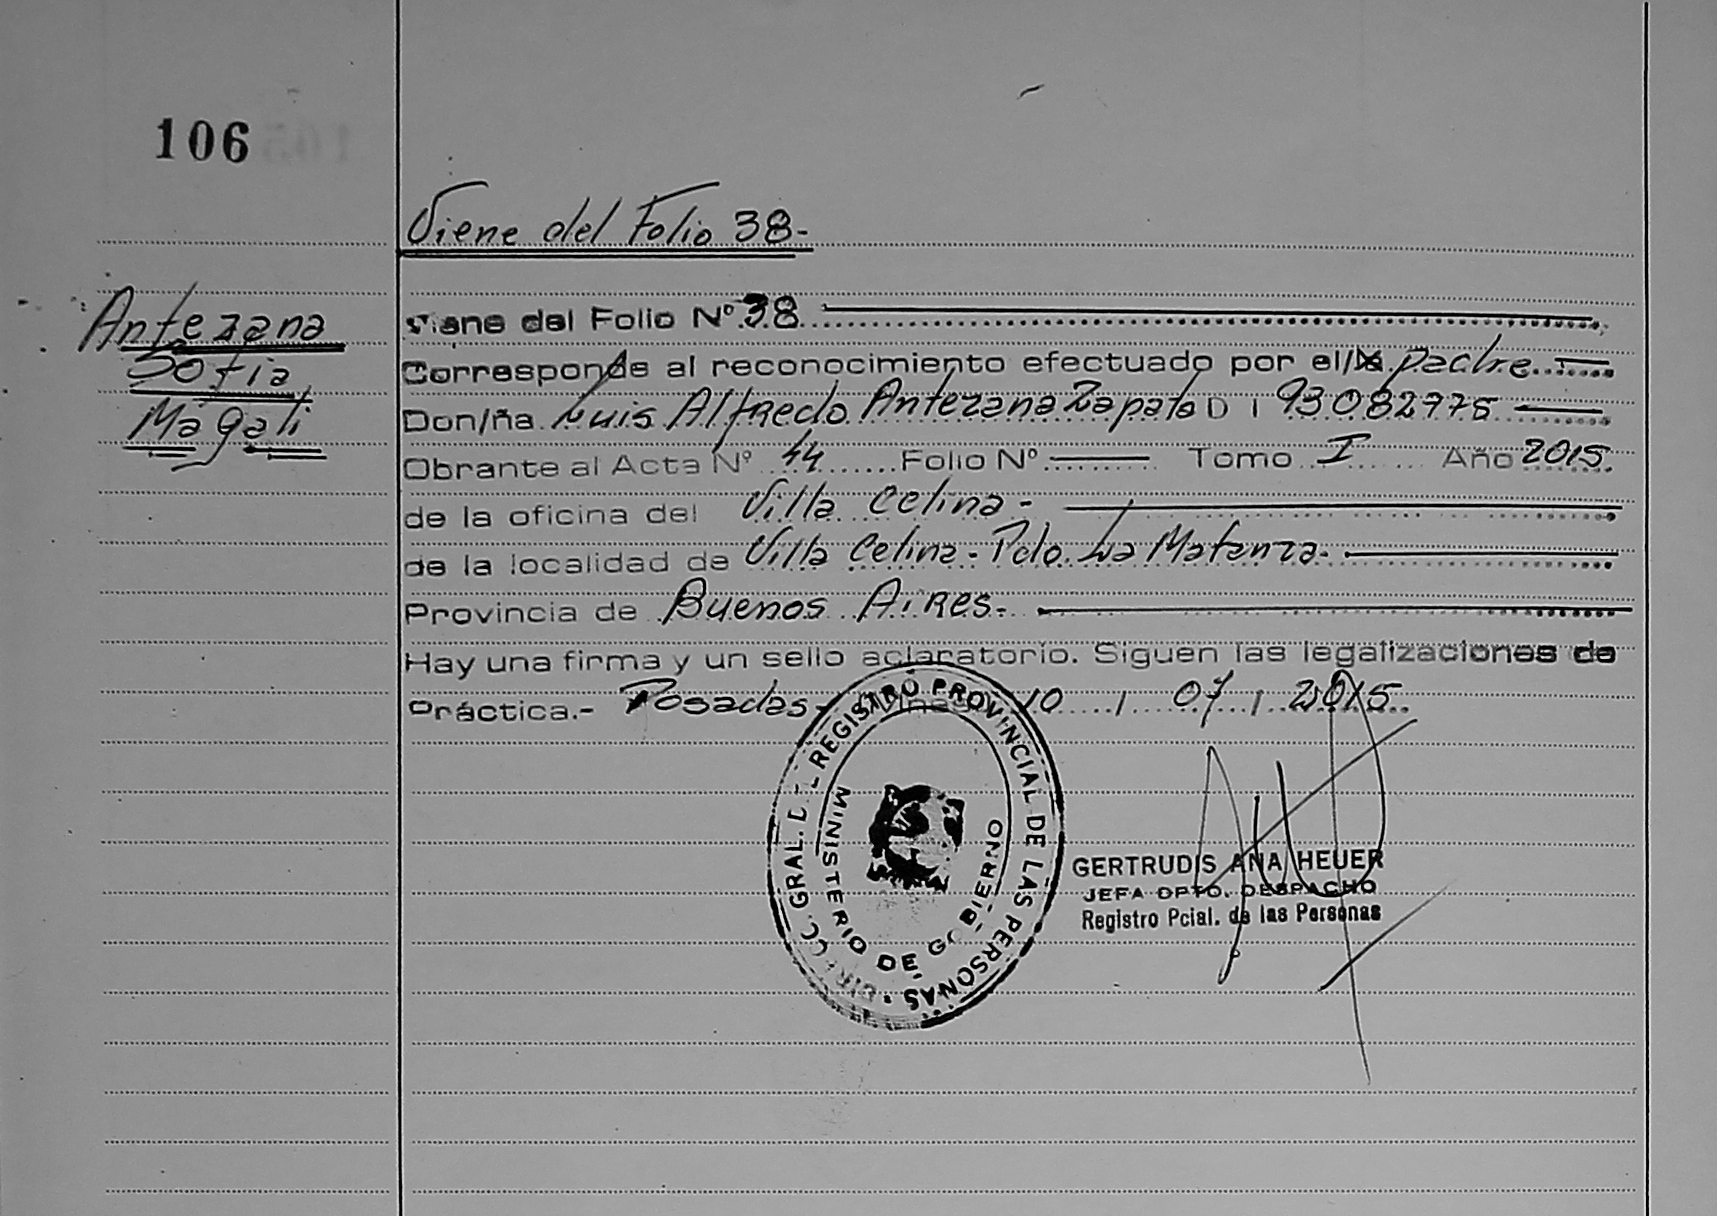 106
Viene del Folio 38-
Antezana
Sofia
Magali
Viene del Folio Nº 38
Corresponde al reconocimiento efectuado por el/la padre
Don/ña Luis Alfredo Antezana Zapata D I 93082975
Obrante al Acta Nº 44 Folio Nº Tomo I Año 2015.
de la oficina del Villa Celina-
de la localidad de Villa Celina- Pdo. La Matanza-
Provincia de Buenos Aires-
Hay una firma y un sello aclaratorio. Siguen las legalizaciones de
Práctica.- Posadas, Mnes. 10 / 07 / 2015.
DIRECC. GRAL. DEL REGISTRO PROVINCIAL DE LAS PERSONAS
MINISTERIO DE GOBIERNO
GERTRUDIS ANA HEUER
JEFA DPTO. DESPACHO
Registro Pcial. de las Personas